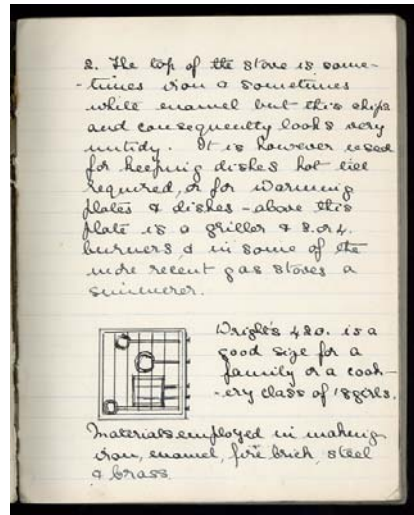 2. The top of the stove is some-
-times iron & sometimes
white enamel but this chips
and consequently looks very
untidy. It is however used
for keeping dishes hot till
required, or for warming
plates & dishes - above this
plate is a griller & 3. or 4.
burners & in some of the
more recent gas stoves a
simmerer.
Wright's 420. is a
good size for a
family or a cook-
-ery class of 18 girls.
Materials employed in making
iron, enamel, fire brick, steel
& brass.